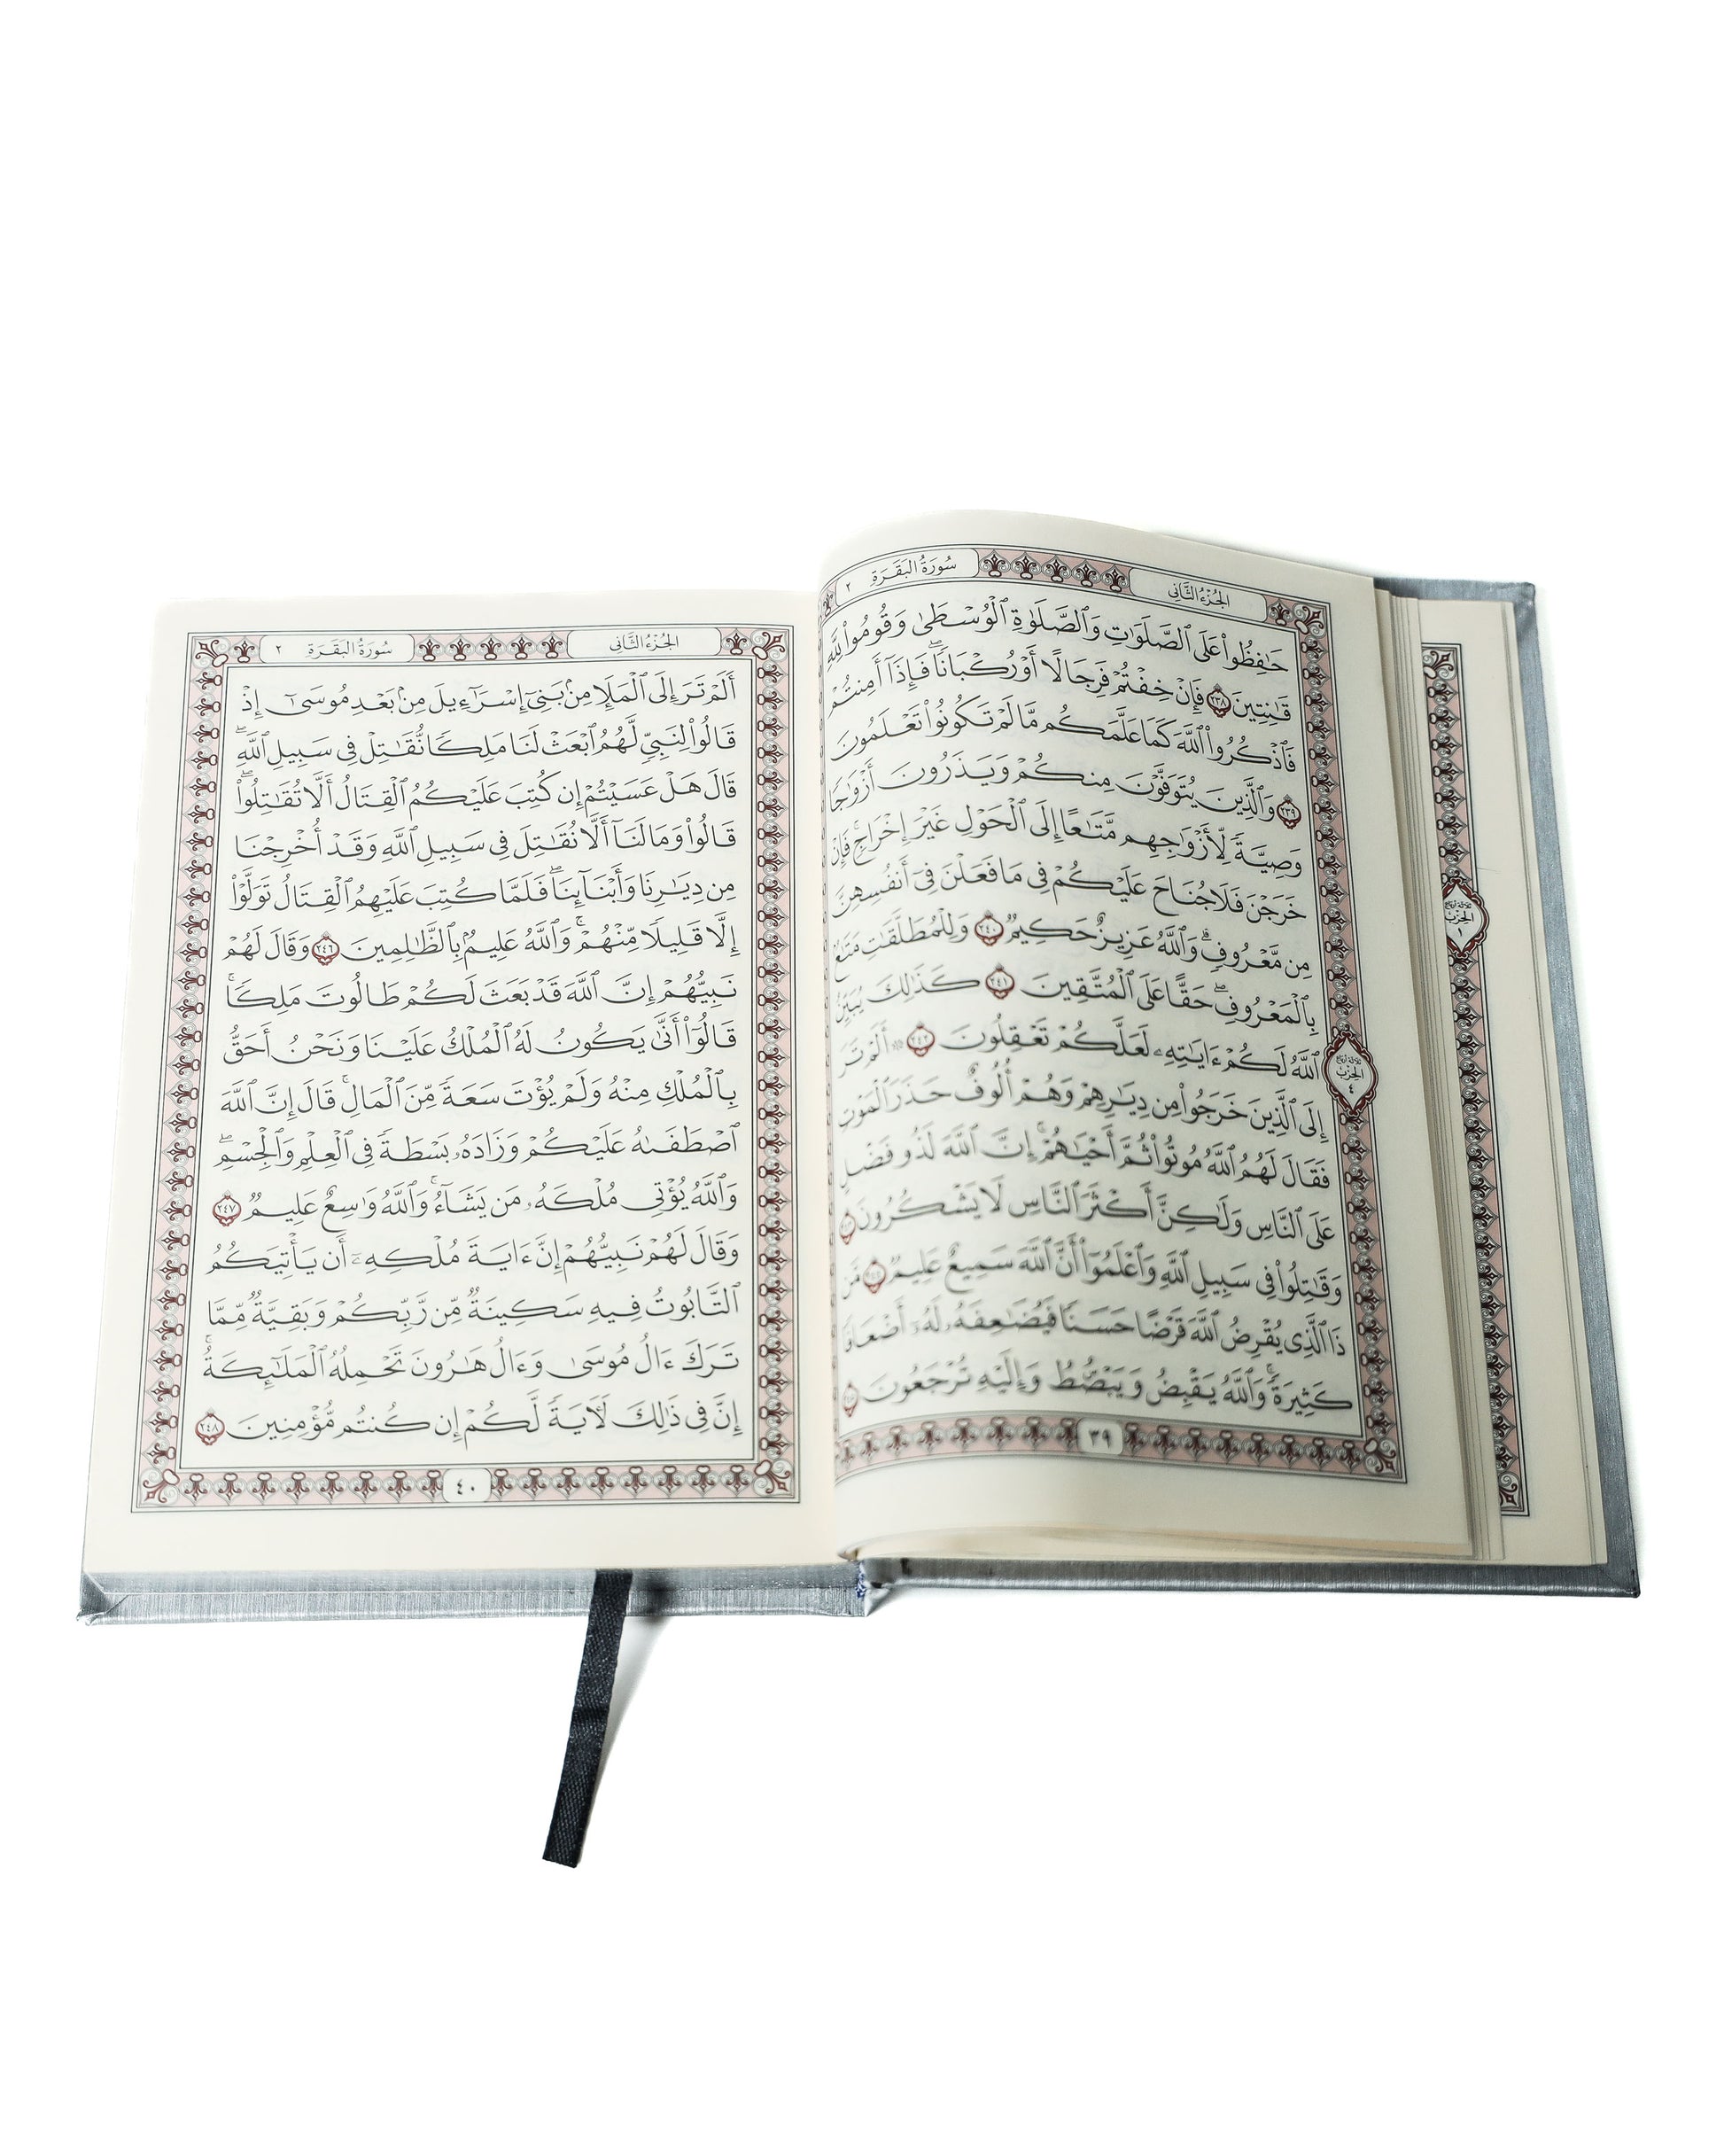 الجزء الثاني
سورة البقرة ٢
حَٰفِظُوا۟ عَلَى ٱلصَّلَوَٰتِ وَٱلصَّلَوٰةِ ٱلْوُسْطَىٰ وَقُومُوا۟ لِلَّهِ
قَٰنِتِينَ ٢٣٨ فَإِنْ خِفْتُمْ فَرِجَالًا أَوْ رُكْبَانًا ۖ فَإِذَآ أَمِنتُمْ
فَٱذْكُرُوا۟ ٱللَّهَ كَمَا عَلَّمَكُم مَّا لَمْ تَكُونُوا۟ تَعْلَمُونَ
٢٣٩ وَٱلَّذِينَ يُتَوَفَّوْنَ مِنكُمْ وَيَذَرُونَ أَزْوَٰجًا
وَصِيَّةً لِّأَزْوَٰجِهِم مَّتَٰعًا إِلَى ٱلْحَوْلِ غَيْرَ إِخْرَاجٍ ۚ فَإِنْ
خَرَجْنَ فَلَا جُنَاحَ عَلَيْكُمْ فِى مَا فَعَلْنَ فِىٓ أَنفُسِهِنَّ
مِن مَّعْرُوفٍ ۗ وَٱللَّهُ عَزِيزٌ حَكِيمٌ ٢٤٠ وَلِلْمُطَلَّقَٰتِ مَتَٰعٌۢ
بِٱلْمَعْرُوفِ ۖ حَقًّا عَلَى ٱلْمُتَّقِينَ ٢٤١ كَذَٰلِكَ يُبَيِّنُ
ٱللَّهُ لَكُمْ ءَايَٰتِهِۦ لَعَلَّكُمْ تَعْقِلُونَ ٢٤٢ ۞ أَلَمْ تَرَ
إِلَى ٱلَّذِينَ خَرَجُوا۟ مِن دِيَٰرِهِمْ وَهُمْ أُلُوفٌ حَذَرَ ٱلْمَوْتِ
فَقَالَ لَهُمُ ٱللَّهُ مُوتُوا۟ ثُمَّ أَحْيَٰهُمْ ۚ إِنَّ ٱللَّهَ لَذُو فَضْلٍ
عَلَى ٱلنَّاسِ وَلَٰكِنَّ أَكْثَرَ ٱلنَّاسِ لَا يَشْكُرُونَ
وَقَٰتِلُوا۟ فِى سَبِيلِ ٱللَّهِ وَٱعْلَمُوٓا۟ أَنَّ ٱللَّهَ سَمِيعٌ عَلِيمٌ ٢٤٤ مَّن
ذَا ٱلَّذِى يُقْرِضُ ٱللَّهَ قَرْضًا حَسَنًا فَيُضَٰعِفَهُۥ لَهُۥٓ أَضْعَافًا
كَثِيرَةً ۚ وَٱللَّهُ يَقْبِضُ وَيَبْصُۜطُ وَإِلَيْهِ تُرْجَعُونَ
٣٩
ثلاثة أرباع
الحزب
٤
ثلاثة أرباع
الحزب
١
الجزء الثاني
سورة البقرة ٢
أَلَمْ تَرَ إِلَى ٱلْمَلَإِ مِنۢ بَنِىٓ إِسْرَٰٓءِيلَ مِنۢ بَعْدِ مُوسَىٰٓ إِذْ
قَالُوا۟ لِنَبِىٍّ لَّهُمُ ٱبْعَثْ لَنَا مَلِكًا نُّقَٰتِلْ فِى سَبِيلِ ٱللَّهِ ۖ
قَالَ هَلْ عَسَيْتُمْ إِن كُتِبَ عَلَيْكُمُ ٱلْقِتَالُ أَلَّا تُقَٰتِلُوا۟ ۖ
قَالُوا۟ وَمَا لَنَآ أَلَّا نُقَٰتِلَ فِى سَبِيلِ ٱللَّهِ وَقَدْ أُخْرِجْنَا
مِن دِيَٰرِنَا وَأَبْنَآئِنَا ۖ فَلَمَّا كُتِبَ عَلَيْهِمُ ٱلْقِتَالُ تَوَلَّوْا۟
إِلَّا قَلِيلًا مِّنْهُمْ ۗ وَٱللَّهُ عَلِيمٌۢ بِٱلظَّٰلِمِينَ ٢٤٦ وَقَالَ لَهُمْ
نَبِيُّهُمْ إِنَّ ٱللَّهَ قَدْ بَعَثَ لَكُمْ طَالُوتَ مَلِكًا ۚ
قَالُوٓا۟ أَنَّىٰ يَكُونُ لَهُ ٱلْمُلْكُ عَلَيْنَا وَنَحْنُ أَحَقُّ
بِٱلْمُلْكِ مِنْهُ وَلَمْ يُؤْتَ سَعَةً مِّنَ ٱلْمَالِ ۚ قَالَ إِنَّ ٱللَّهَ
ٱصْطَفَىٰهُ عَلَيْكُمْ وَزَادَهُۥ بَسْطَةً فِى ٱلْعِلْمِ وَٱلْجِسْمِ ۖ
وَٱللَّهُ يُؤْتِى مُلْكَهُۥ مَن يَشَآءُ ۚ وَٱللَّهُ وَٰسِعٌ عَلِيمٌ ٢٤٧
وَقَالَ لَهُمْ نَبِيُّهُمْ إِنَّ ءَايَةَ مُلْكِهِۦٓ أَن يَأْتِيَكُمُ
ٱلتَّابُوتُ فِيهِ سَكِينَةٌ مِّن رَّبِّكُمْ وَبَقِيَّةٌ مِّمَّا
تَرَكَ ءَالُ مُوسَىٰ وَءَالُ هَٰرُونَ تَحْمِلُهُ ٱلْمَلَٰٓئِكَةُ ۚ
إِنَّ فِى ذَٰلِكَ لَءَايَةً لَّكُمْ إِن كُنتُم مُّؤْمِنِينَ ٢٤٨
٤٠